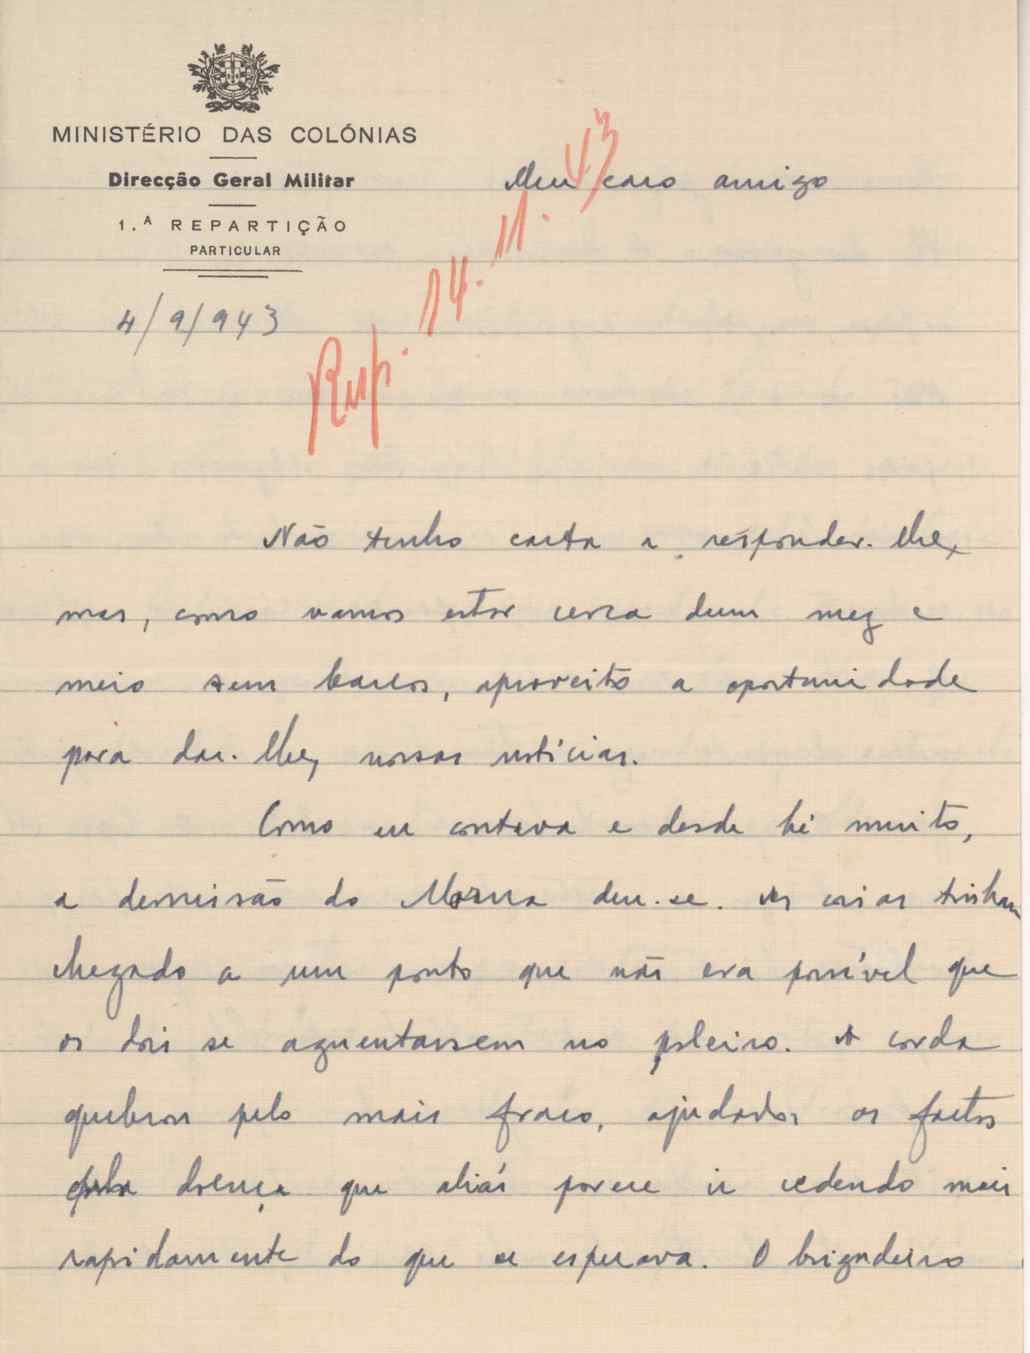 MINISTÉRIO DAS COLÓNIAS
Direcção Geral Militar
1.ª REPARTIÇÃO
PARTICULAR
4/9/943
Resp. 14.11.43
Meu caro amigo
Não tenho carta a responder-lhe,
mas, como vamos estar cerca dum mez e
meio sem barcos, aproveito a oportunidade
para dar-lhe, nossas notícias.
Como eu contava e desde há muito,
a demissão do Morna deu-se. As coisas tinham
chegado a um ponto que não era possível que
os dois se aguentassem no poleiro. A corda
quebrou pelo mais fraco, ajudados os factos
pela doença que aliás parece ir cedendo mais
rapidamente do que se esperava. O brigadeiro